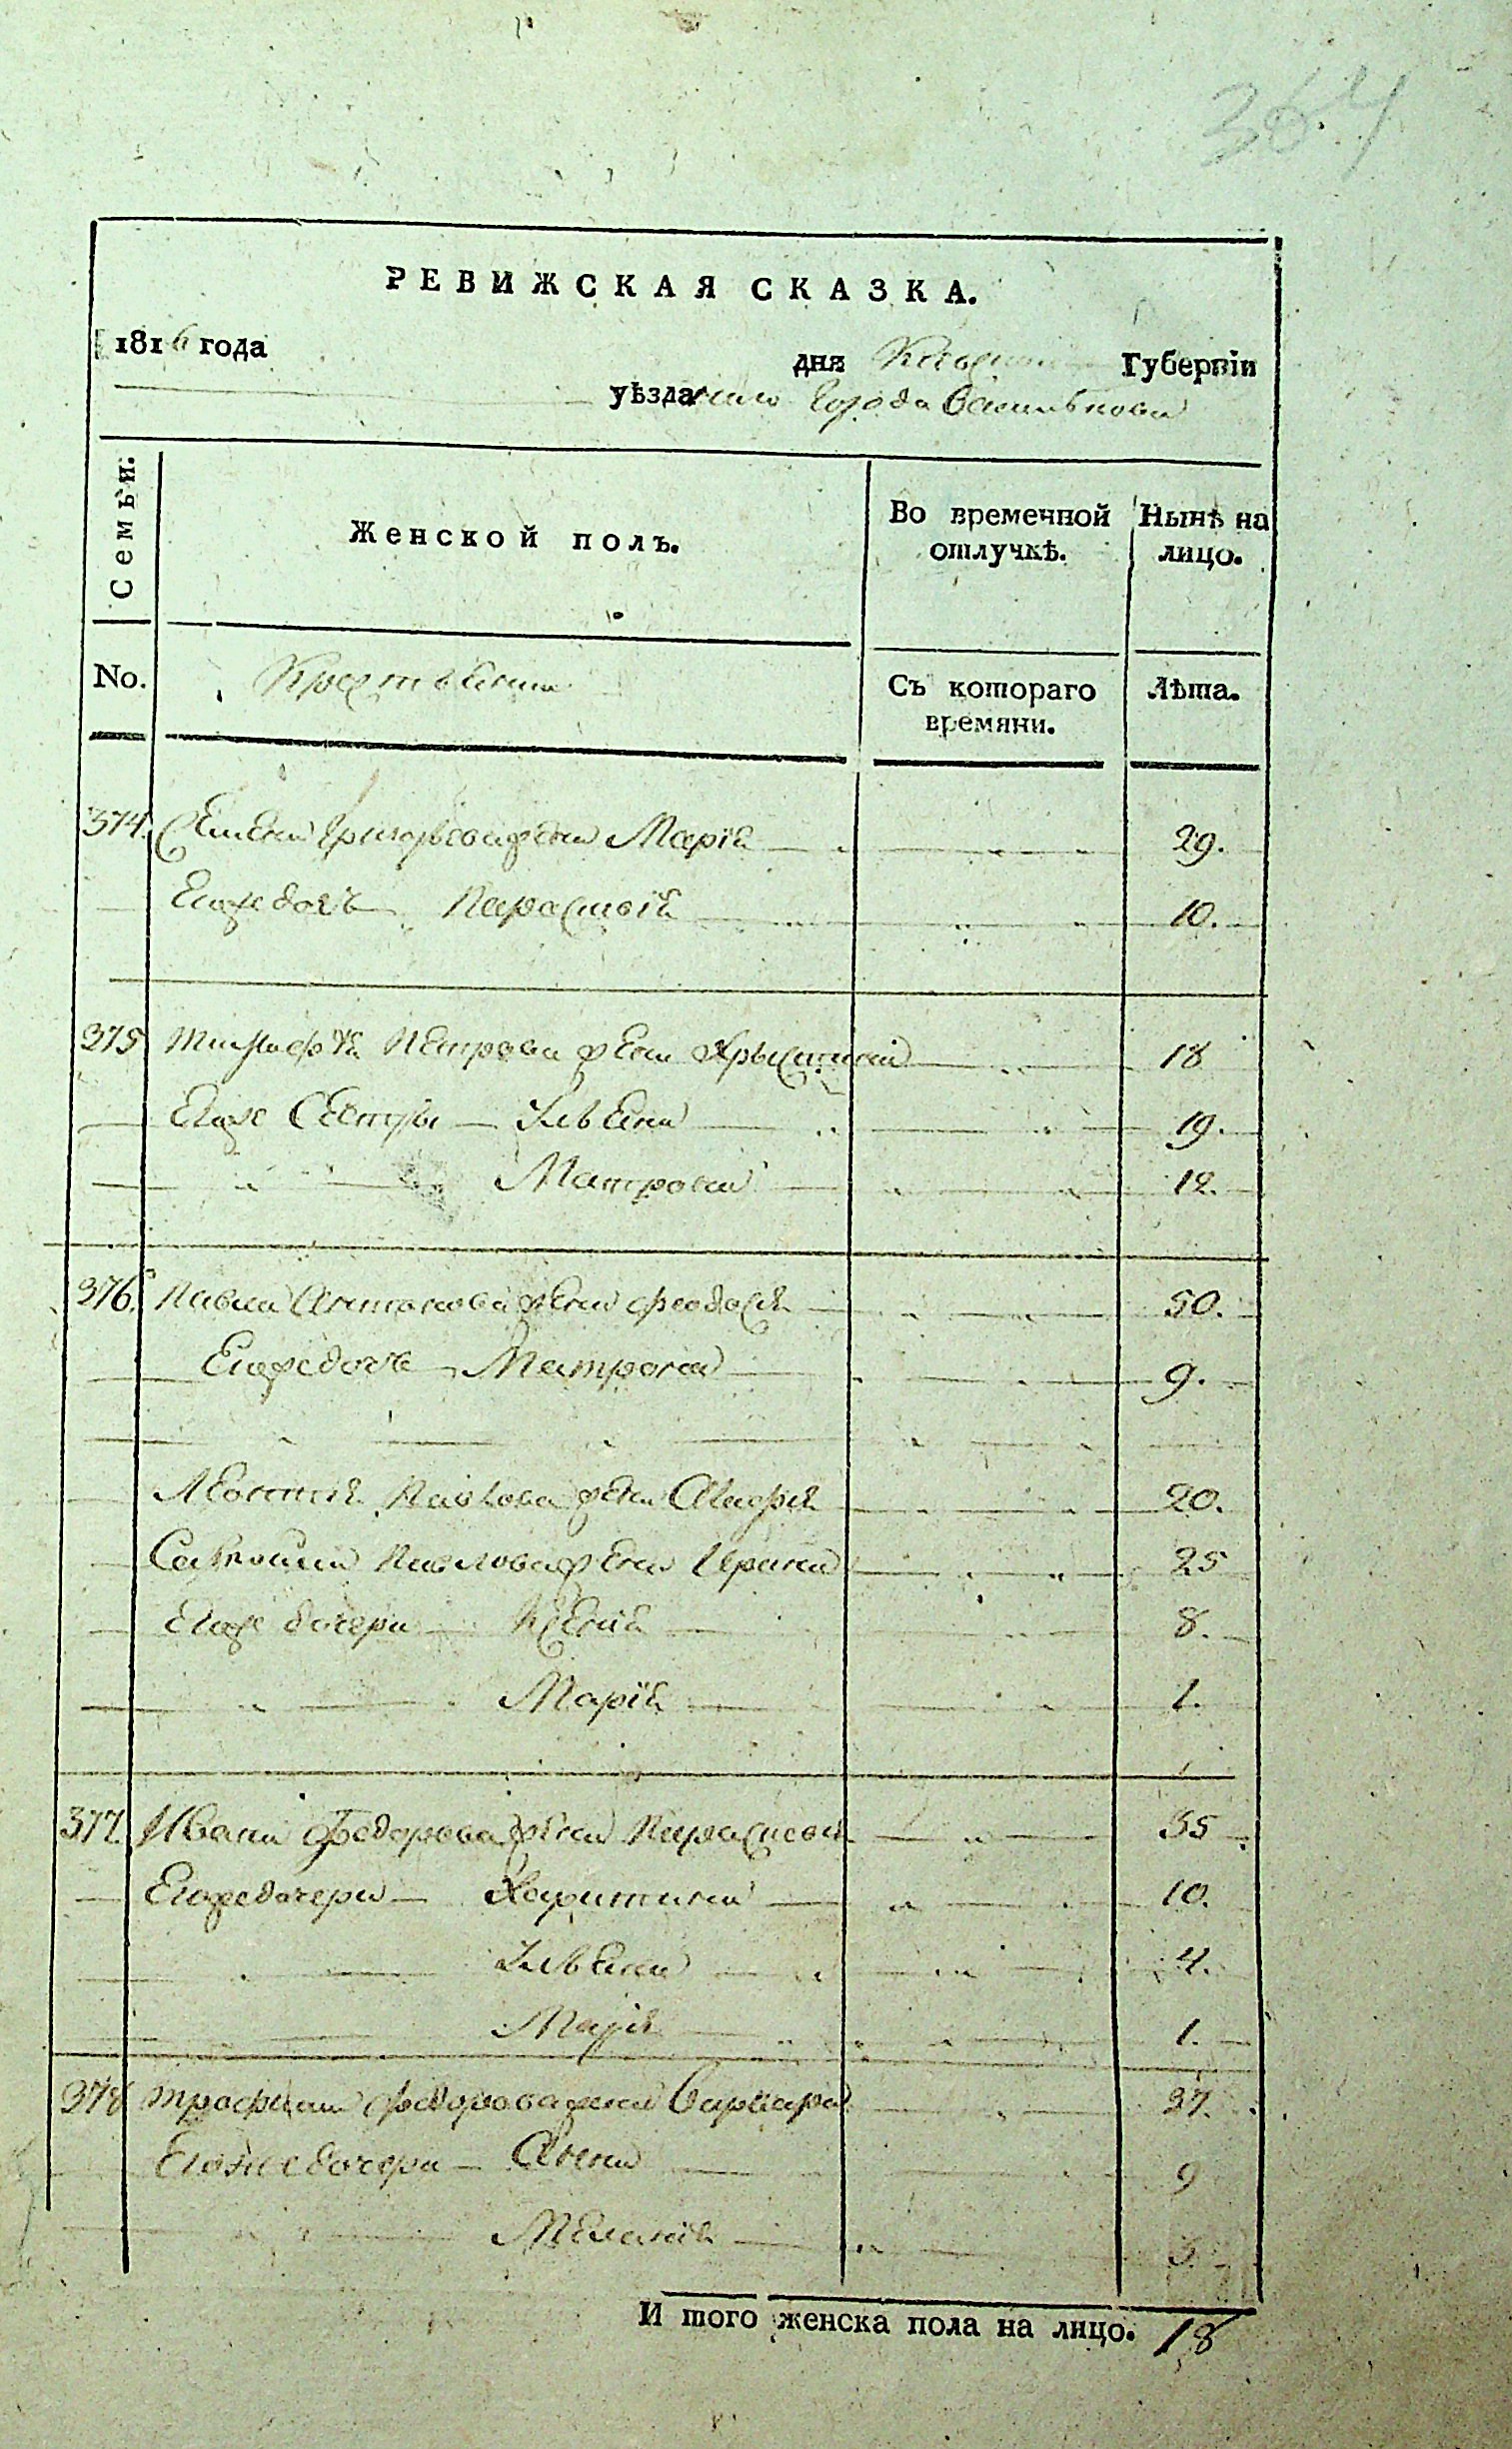 364
РЕВИЖСКАЯ СКАЗКА.
1816 года дня Киевской Губерніи
уѣзда города Василькова
Семьи. Женской полъ. Во времечной отлучкѣ. Нынѣ на лицо.
No. Крестьяни Съ котораго времяни. Лѣта.
374. Семена Григорьева жена Марія 29.
Егоже дочь Парасковія 10.
375 Тимофѣя Петрова жена Хрыстина 18
Егоже Сестры Ульяна 19.
Матрона 12.
376. Павла Антонова жена Феодосія 50.
Егоже дочь Матрона 9.
Леонтія Павлова жена 20.
Павлова жена Ирина 25
Егоже дочери Ксенія 8.
Марія 1.
377 Ивана Федорова жена Парасковія 35
Егоже дочери Харитина 10.
Ульяна 4.
Марія 1.
378 Трофима Федорова жена Варвара 37.
Егоже дочери Анна 9
Меланія 3.
И того женска пола на лицо. 18